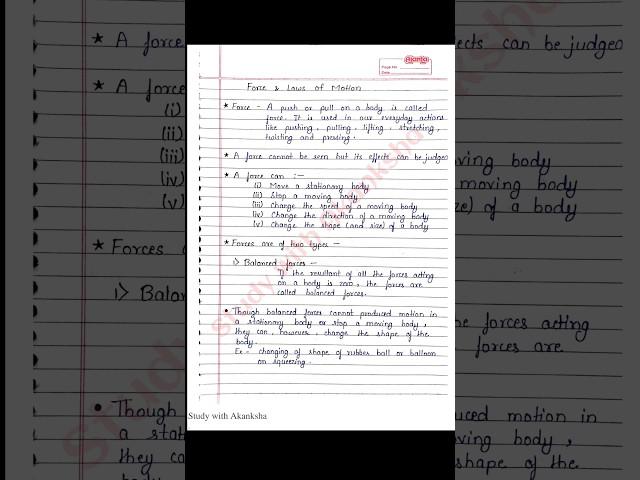 Akanta
Page No.
Date
Force & Laws of Motion
* Force - A push or pull on a body is called
force. It is used in our everyday actions
like pushing, pulling, lifting, stretching,
twisting and pressing.
* A force cannot be seen but its effects can be judged
* A force can :-
(i) Move a stationary body
(ii) Stop a moving body
(iii) Change the speed of a moving body
(iv) Change the direction of a moving body
(v) Change the shape (and size) of a body
* Forces are of two types -
1> Balanced forces -
If the resultant of all the forces acting
on a body is zero, the forces are
called balanced forces.
• Though balanced forces cannot produced motion in
a stationary body or stop a moving body,
they can, however, change the shape of the
body.
Ex - changing of shape of rubber ball or balloon
on squeezing.
Study with Akanksha
Study with Akanksha
* A force
ects can be judged
* A force
(i)
(ii)
(iii)
ving body
(iv)
moving body
(v)
ze) of a body
* Forces a
1> Balan
e forces acting
forces are
• Though
uced motion in
a stati
ving body,
they ca
shape of the